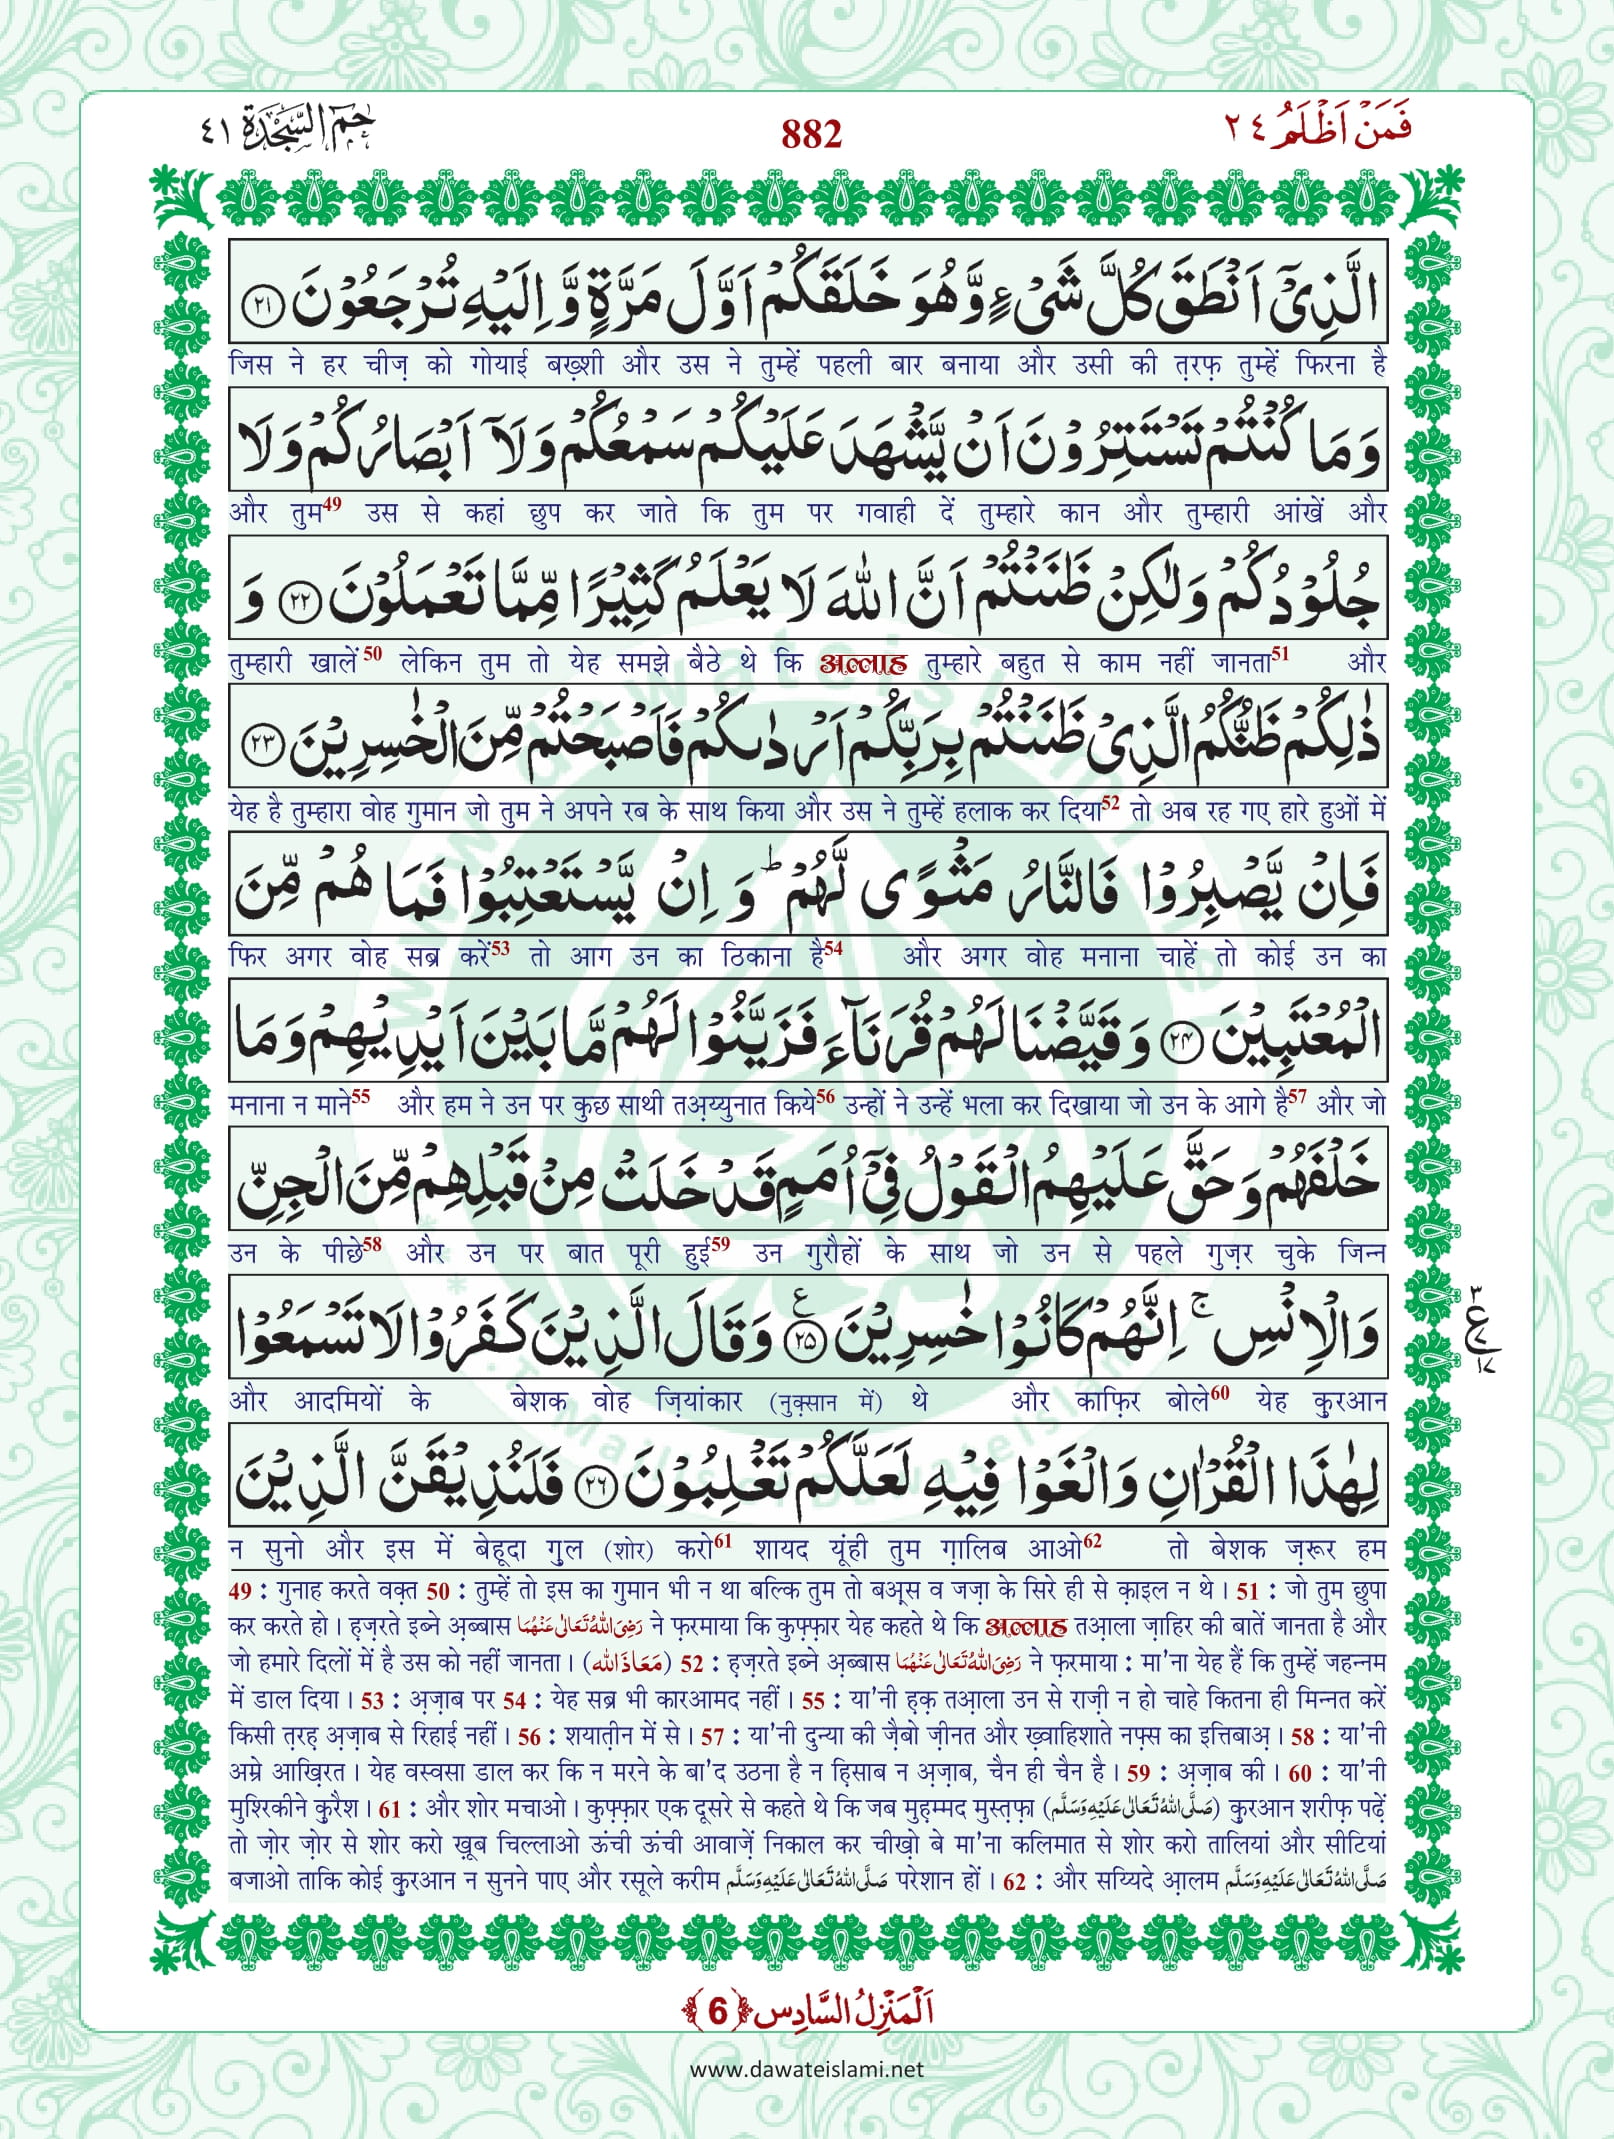 فَمَنْ اَظْلَمُ ٢٤
882
حٰمٓ السَّجْدَة ٤١
الَّذِیْۤ اَنْطَقَ كُلَّ شَیْءٍ وَّ هُوَ خَلَقَكُمْ اَوَّلَ مَرَّةٍ وَّ اِلَیْهِ تُرْجَعُوْنَ ﴿۲۱﴾
जिस ने हर चीज़ को गोयाई बख़्शी और उस ने तुम्हें पहली बार बनाया और उसी की त़रफ़ तुम्हें फिरना है
وَ مَا كُنْتُمْ تَسْتَتِرُوْنَ اَنْ یَّشْهَدَ عَلَیْكُمْ سَمْعُكُمْ وَ لَاۤ اَبْصَارُكُمْ وَ لَا
और तुम49 उस से कहां छुप कर जाते कि तुम पर गवाही दें तुम्हारे कान और तुम्हारी आंखें और
جُلُوْدُكُمْ وَ لٰكِنْ ظَنَنْتُمْ اَنَّ اللّٰهَ لَا یَعْلَمُ كَثِیْرًا مِّمَّا تَعْمَلُوْنَ ﴿۲۲﴾ وَ
तुम्हारी खालें50 लेकिन तुम तो येह समझे बैठे थे कि अल्लाह तुम्हारे बहुत से काम नहीं जानता51 और
ذٰلِكُمْ ظَنُّكُمُ الَّذِیْ ظَنَنْتُمْ بِرَبِّكُمْ اَرْدٰىكُمْ فَاَصْبَحْتُمْ مِّنَ الْخٰسِرِیْنَ ﴿۲۳﴾
येह है तुम्हारा वोह गुमान जो तुम ने अपने रब के साथ किया और उस ने तुम्हें हलाक कर दिया52 तो अब रह गए हारे हुओं में
فَاِنْ یَّصْبِرُوْا فَالنَّارُ مَثْوًى لَّهُمْ ؕ وَ اِنْ یَّسْتَعْتِبُوْا فَمَا هُمْ مِّنَ
फिर अगर वोह सब्र करें53 तो आग उन का ठिकाना है54 और अगर वोह मनाना चाहें तो कोई उन का
الْمُعْتَبِیْنَ ﴿۲۴﴾ وَ قَیَّضْنَا لَهُمْ قُرَنَآءَ فَزَیَّنُوْا لَهُمْ مَّا بَیْنَ اَیْدِیْهِمْ وَ مَا
मनाना न माने55 और हम ने उन पर कुछ साथी तअ़य्युनात किये56 उन्हों ने उन्हें भला कर दिखाया जो उन के आगे है57 और जो
خَلْفَهُمْ وَ حَقَّ عَلَیْهِمُ الْقَوْلُ فِیْۤ اُمَمٍ قَدْ خَلَتْ مِنْ قَبْلِهِمْ مِّنَ الْجِنِّ
उन के पीछे58 और उन पर बात पूरी हुई59 उन गुरौहों के साथ जो उन से पहले गुज़र चुके जिन्न
وَ الْاِنْسِ ۚ اِنَّهُمْ كَانُوْا خٰسِرِیْنَ ﴿۲۵﴾ ع وَ قَالَ الَّذِیْنَ كَفَرُوْا لَا تَسْمَعُوْا
۳ ع ۱۷
और आदमियों के बेशक वोह ज़ियांकार (नुक़्सान में) थे और काफ़िर बोले60 येह क़ुरआन
لِهٰذَا الْقُرْاٰنِ وَ الْغَوْا فِیْهِ لَعَلَّكُمْ تَغْلِبُوْنَ ﴿۲۶﴾ فَلَنُذِیْقَنَّ الَّذِیْنَ
न सुनो और इस में बेहूदा गुल (शोर) करो61 शायद यूंही तुम ग़ालिब आओ62 तो बेशक ज़रूर हम
49 : गुनाह करते वक़्त 50 : तुम्हें तो इस का गुमान भी न था बल्कि तुम तो बअ़्स व जज़ा के सिरे ही से क़ाइल न थे। 51 : जो तुम छुपा
कर करते हो। ह़ज़रते इब्ने अ़ब्बास رَضِیَ اللّٰهُ تَعَالٰی عَنْهُمَا ने फ़रमाया कि कुफ़्फ़ार येह कहते थे कि अल्लाह तआ़ला ज़ाहिर की बातें जानता है और
जो हमारे दिलों में है उस को नहीं जानता। (مَعَاذَ اللّٰه) 52 : ह़ज़रते इब्ने अ़ब्बास رَضِیَ اللّٰهُ تَعَالٰی عَنْهُمَا ने फ़रमाया : मा'ना येह हैं कि तुम्हें जहन्नम
में डाल दिया। 53 : अ़ज़ाब पर 54 : येह सब्र भी कारआमद नहीं। 55 : या'नी ह़क़ तआ़ला उन से राज़ी न हो चाहे कितना ही मिन्नत करें
किसी त़रह़ अ़ज़ाब से रिहाई नहीं। 56 : शयात़ीन में से। 57 : या'नी दुन्या की ज़ैबो ज़ीनत और ख़्वाहिशाते नफ़्स का इत्तिबाअ़। 58 : या'नी
अम्रे आख़िरत। येह वस्वसा डाल कर कि न मरने के बा'द उठना है न ह़िसाब न अ़ज़ाब, चैन ही चैन है। 59 : अ़ज़ाब की। 60 : या'नी
मुश्रिकीने क़ुरैश। 61 : और शोर मचाओ। कुफ़्फ़ार एक दूसरे से कहते थे कि जब मुह़म्मद मुस्त़फ़ा (صَلَّی اللّٰهُ تَعَالٰی عَلَیْهِ وَسَلَّم) क़ुरआन शरीफ़ पढ़ें
तो ज़ोर ज़ोर से शोर करो ख़ूब चिल्लाओ ऊंची ऊंची आवाज़ें निकाल कर चीख़ो बे मा'ना कलिमात से शोर करो तालियां और सीटियां
बजाओ ताकि कोई क़ुरआन न सुनने पाए और रसूले करीम صَلَّی اللّٰهُ تَعَالٰی عَلَیْهِ وَسَلَّم परेशान हों। 62 : और सय्यिदे आ़लम صَلَّی اللّٰهُ تَعَالٰی عَلَیْهِ وَسَلَّم
اَلْمَنْزِلُ السَّادِس ﴿6﴾
www.dawateislami.net